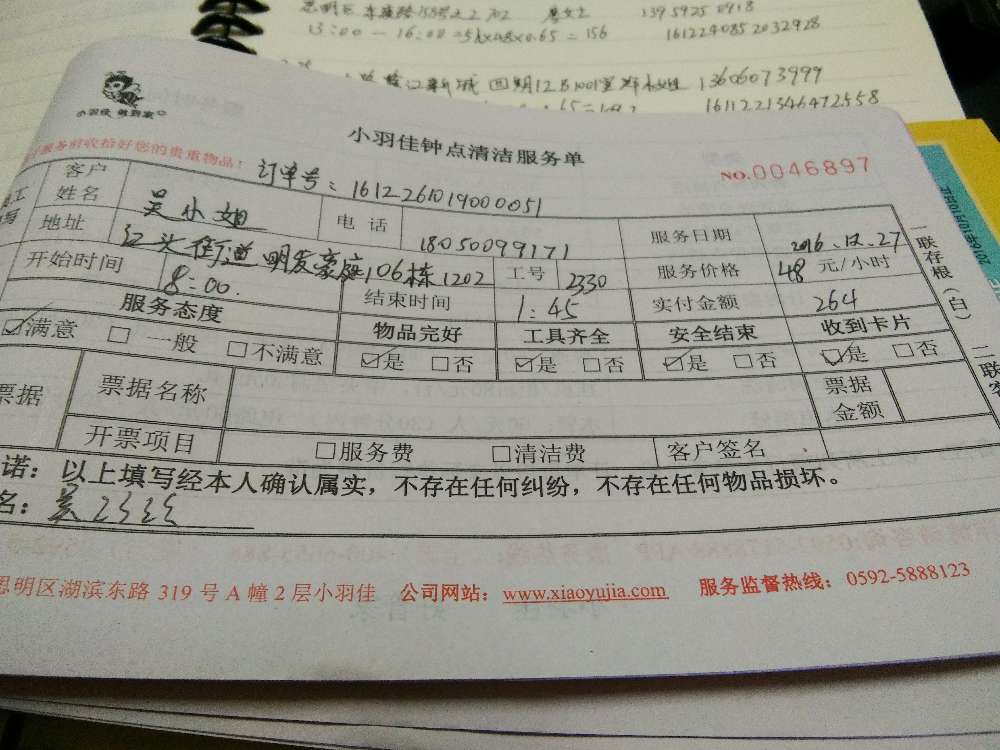 13:00 — 16:00 =3h×48×0.65=156
13959250918
161224085 2032928
四期12B1001室
13606073999
1611221346472558
小羽佳 做到家
小羽佳钟点清洁服务单
服务前收拾好您的贵重物品!
订单号:1612261019000051
NO.0046897
客户姓名 吴小姐 电话 18050099171 服务日期 2016.12.27
地址 江头街道明发豪庭106栋1202 工号 2330 服务价格 48 元/小时
开始时间 8:00. 结束时间 1:45 实付金额 264
服务态度 物品完好 工具齐全 安全结束 收到卡片
☑满意 □一般 □不满意 ☑是 □否 ☑是 □否 ☑是 □否 ☑是 □否
票据 票据名称 票据金额
开票项目 □服务费 □清洁费 客户签名
诺:以上填写经本人确认属实,不存在任何纠纷,不存在任何物品损坏。
名:
一联存根(白)
二联客
思明区湖滨东路 319 号 A 幢 2 层小羽佳 公司网站:www.xiaoyujia.com 服务监督热线:0592-5888123